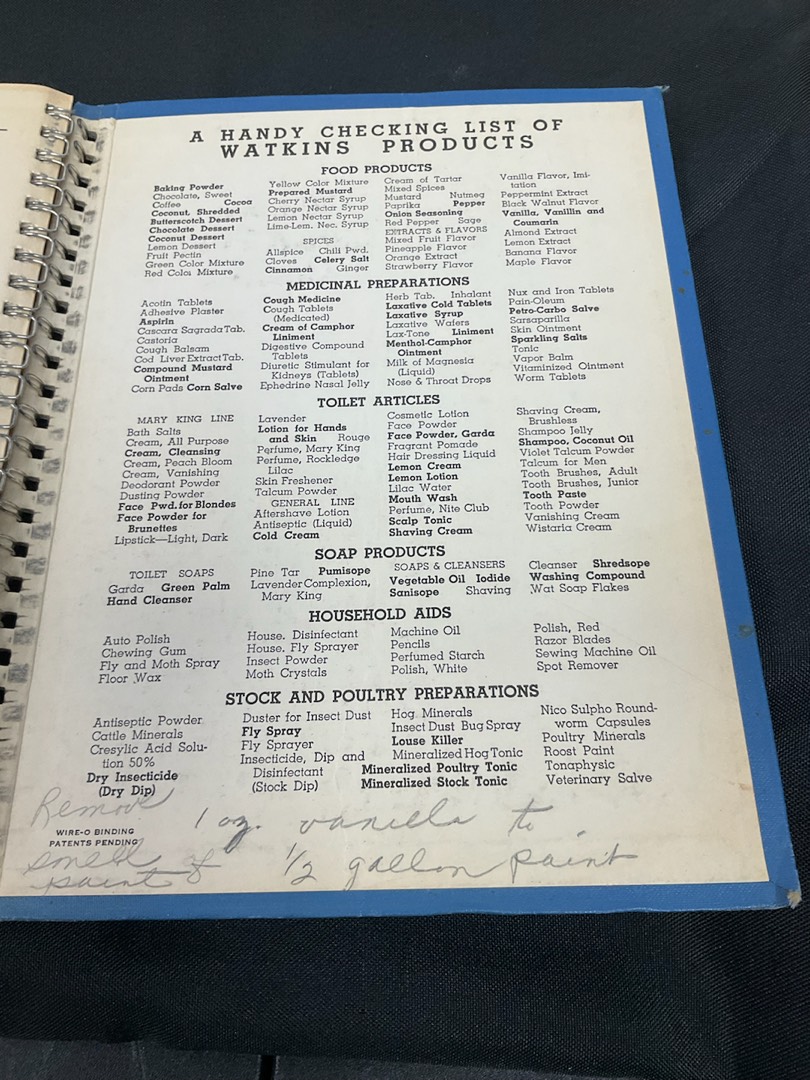 A HANDY CHECKING LIST OF
WATKINS PRODUCTS
FOOD PRODUCTS
Baking Powder
Chocolate, Sweet
Coffee Cocoa
Coconut, Shredded
Butterscotch Dessert
Chocolate Dessert
Coconut Dessert
Lemon Dessert
Fruit Pectin
Green Color Mixture
Red Color Mixture
Yellow Color Mixture
Prepared Mustard
Cherry Nectar Syrup
Orange Nectar Syrup
Lemon Nectar Syrup
Lime-Lem. Nec. Syrup
SPICES
Allspice Chili Pwd.
Cloves Celery Salt
Cinnamon Ginger
Cream of Tartar
Mixed Spices
Mustard Nutmeg
Paprika Pepper
Onion Seasoning
Red Pepper Sage
EXTRACTS & FLAVORS
Mixed Fruit Flavor
Pineapple Flavor
Orange Extract
Strawberry Flavor
Vanilla Flavor, Imi-
tation
Peppermint Extract
Black Walnut Flavor
Vanilla, Vanillin and
Coumarin
Almond Extract
Lemon Extract
Banana Flavor
Maple Flavor
MEDICINAL PREPARATIONS
Acotin Tablets
Adhesive Plaster
Aspirin
Cascara Sagrada Tab.
Castoria
Cough Balsam
Cod Liver Extract Tab.
Compound Mustard
Ointment
Corn Pads Corn Salve
Cough Medicine
Cough Tablets
(Medicated)
Cream of Camphor
Liniment
Digestive Compound
Tablets
Diuretic Stimulant for
Kidneys (Tablets)
Ephedrine Nasal Jelly
Herb Tab. Inhalant
Laxative Cold Tablets
Laxative Syrup
Laxative Wafers
Lax-Tone Liniment
Menthol-Camphor
Ointment
Milk of Magnesia
(Liquid)
Nose & Throat Drops
Nux and Iron Tablets
Pain-Oleum
Petro-Carbo Salve
Sarsaparilla
Skin Ointment
Sparkling Salts
Tonic
Vapor Balm
Vitaminized Ointment
Worm Tablets
TOILET ARTICLES
MARY KING LINE
Bath Salts
Cream, All Purpose
Cream, Cleansing
Cream, Peach Bloom
Cream, Vanishing
Deodorant Powder
Dusting Powder
Face Pwd. for Blondes
Face Powder for
Brunettes
Lipstick—Light, Dark
Lavender
Lotion for Hands
and Skin Rouge
Perfume, Mary King
Perfume, Rockledge
Lilac
Skin Freshener
Talcum Powder
GENERAL LINE
Aftershave Lotion
Antiseptic (Liquid)
Cold Cream
Cosmetic Lotion
Face Powder
Face Powder, Garda
Fragrant Pomade
Hair Dressing Liquid
Lemon Cream
Lemon Lotion
Lilac Water
Mouth Wash
Perfume, Nite Club
Scalp Tonic
Shaving Cream
Shaving Cream,
Brushless
Shampoo Jelly
Shampoo, Coconut Oil
Violet Talcum Powder
Talcum for Men
Tooth Brushes, Adult
Tooth Brushes, Junior
Tooth Paste
Tooth Powder
Vanishing Cream
Wistaria Cream
SOAP PRODUCTS
TOILET SOAPS
Garda Green Palm
Hand Cleanser
Pine Tar Pumisope
Lavender Complexion,
Mary King
SOAPS & CLEANSERS
Vegetable Oil Iodide
Sanisope Shaving
Cleanser Shredsope
Washing Compound
Wat Soap Flakes
HOUSEHOLD AIDS
Auto Polish
Chewing Gum
Fly and Moth Spray
Floor Wax
House. Disinfectant
House. Fly Sprayer
Insect Powder
Moth Crystals
Machine Oil
Pencils
Perfumed Starch
Polish, White
Polish, Red
Razor Blades
Sewing Machine Oil
Spot Remover
STOCK AND POULTRY PREPARATIONS
Antiseptic Powder
Cattle Minerals
Cresylic Acid Solu-
tion 50%
Dry Insecticide
(Dry Dip)
Duster for Insect Dust
Fly Spray
Fly Sprayer
Insecticide, Dip and
Disinfectant
(Stock Dip)
Hog Minerals
Insect Dust Bug Spray
Louse Killer
Mineralized Hog Tonic
Mineralized Poultry Tonic
Mineralized Stock Tonic
Nico Sulpho Round-
worm Capsules
Poultry Minerals
Roost Paint
Tonaphysic
Veterinary Salve
Remove 1 oz. vanilla to
WIRE-O BINDING
PATENTS PENDING
smell of 1/2 gallon paint
paint